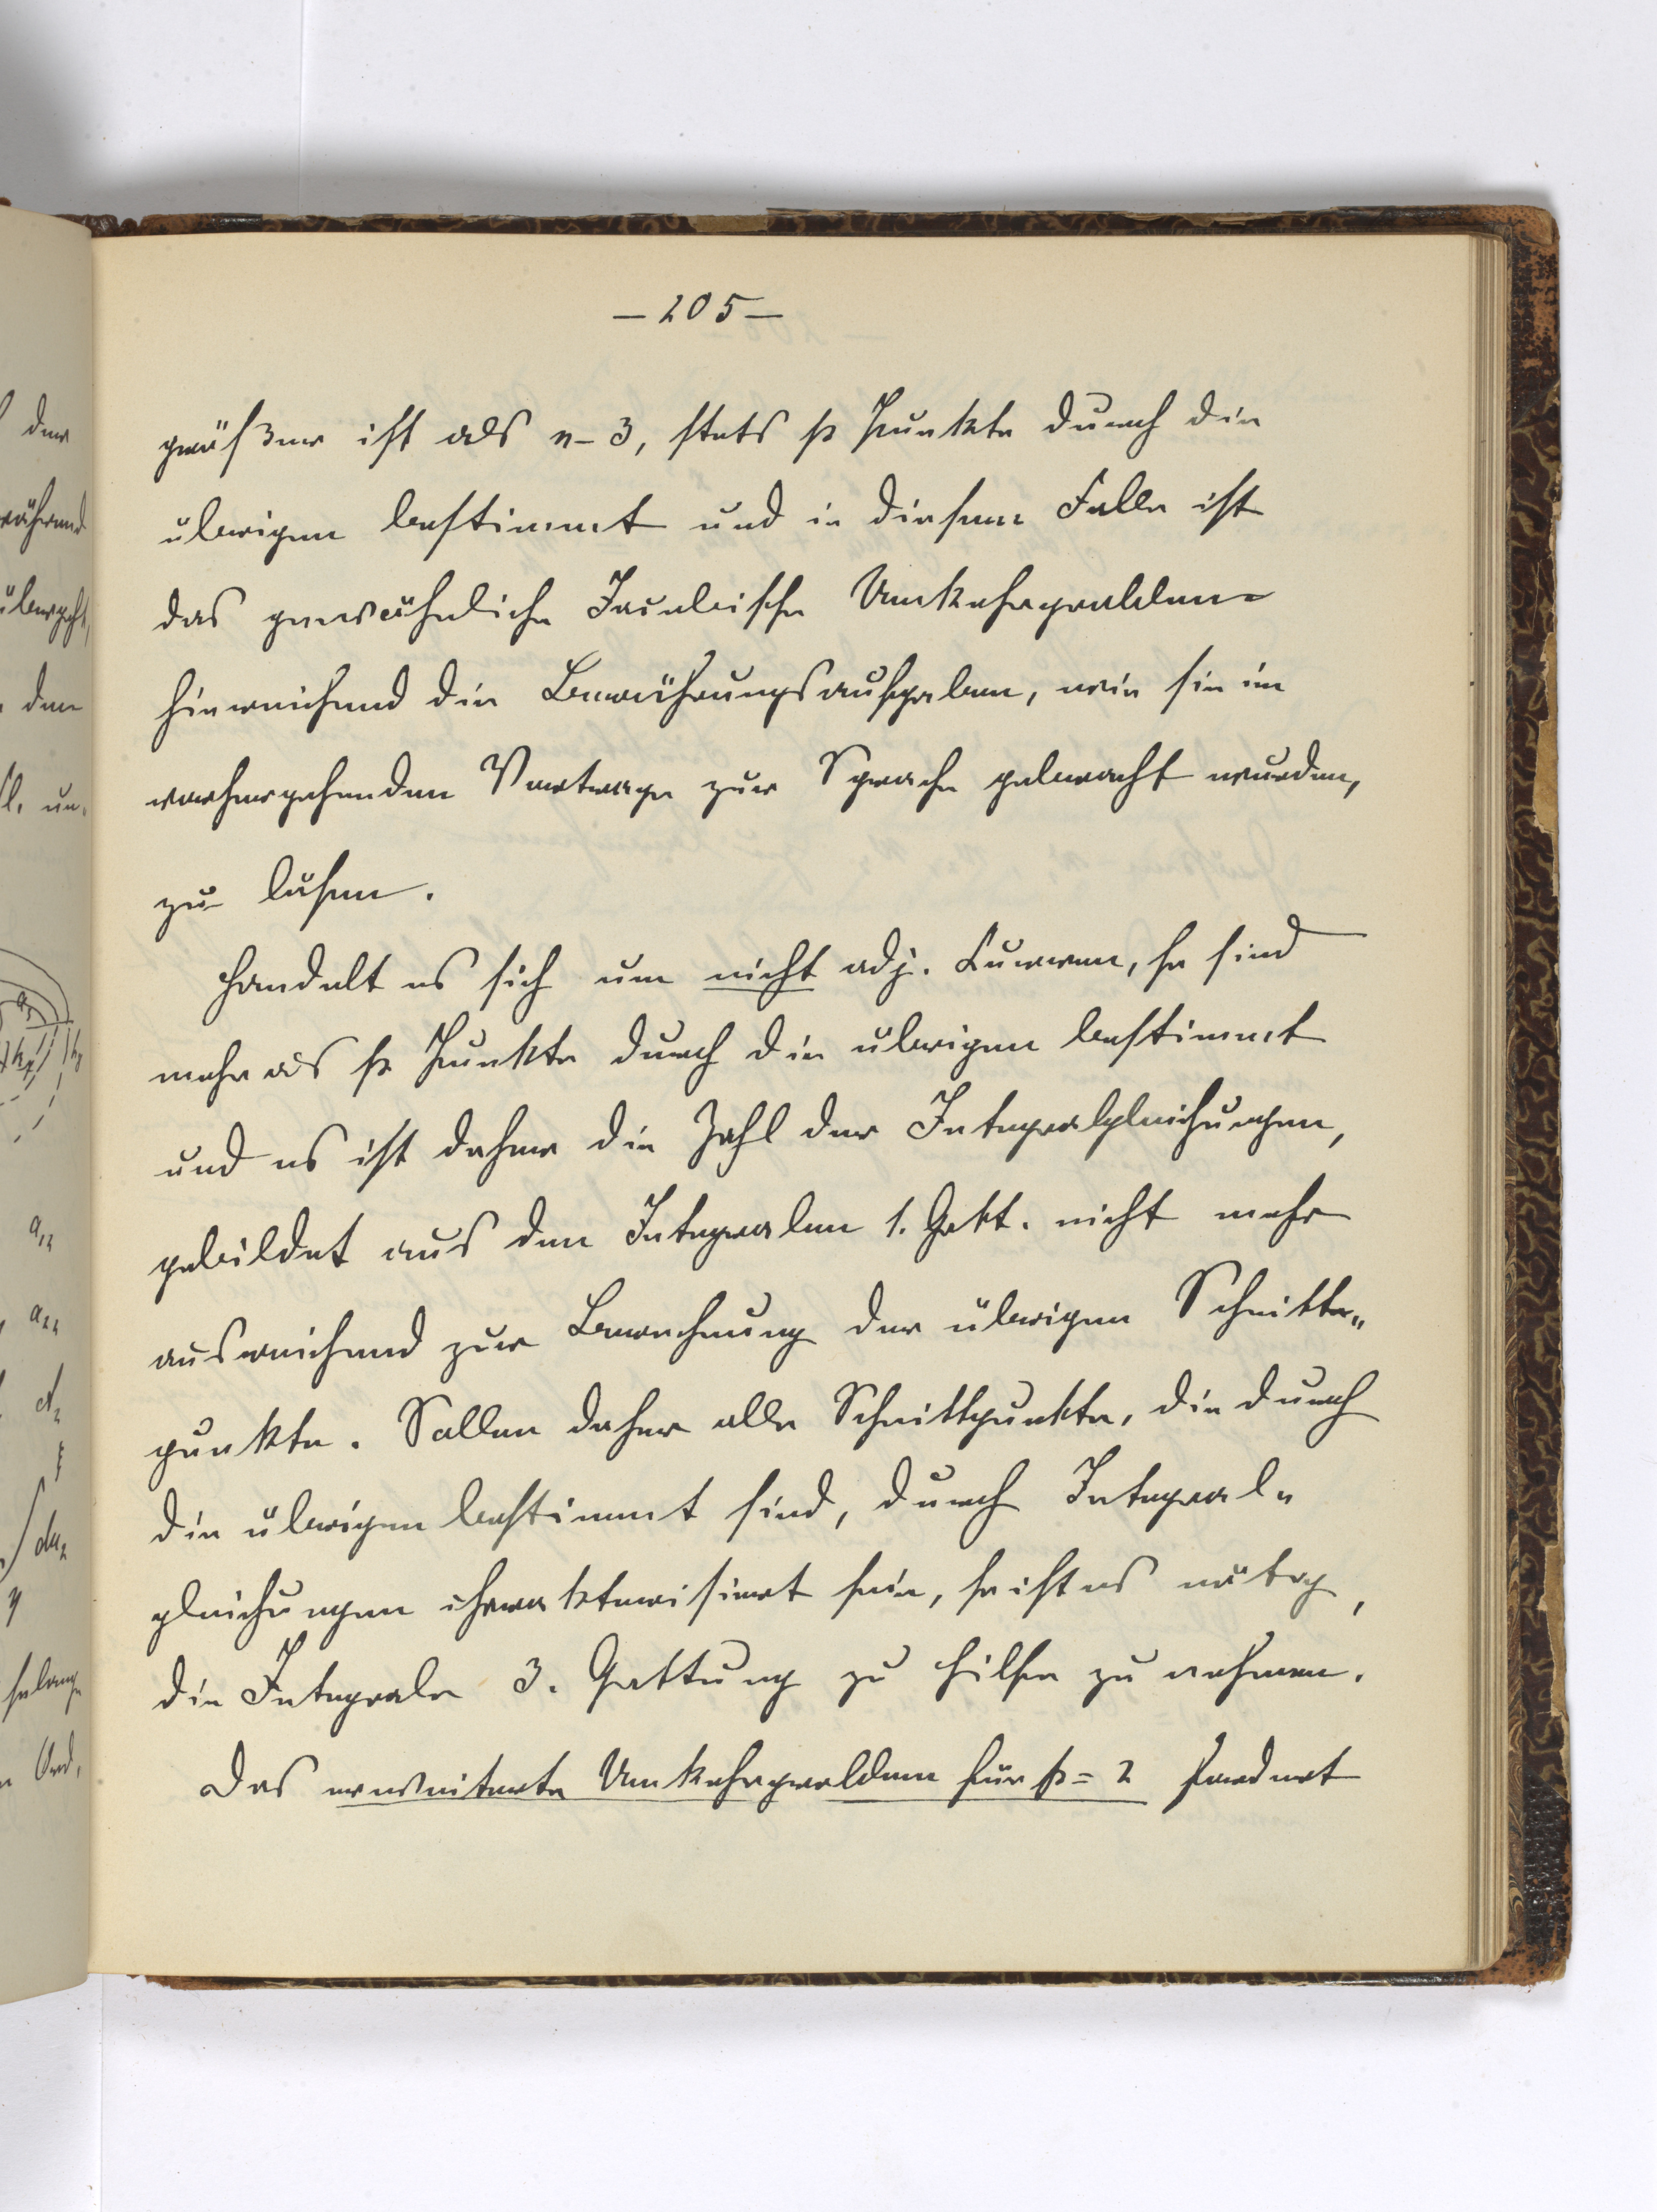 — 205 —
größer ist als n-3, stets p Punkte durch die
übrigen bestimmt und in diesem Falle ist
das gewöhnliche Jacobische Umkehrproblem
hinreichend die Berührungsaufgaben, wie sie im
vorhergehenden Vortrage zur Sprache gebracht wurden,
zu lösen.
Handelt es sich um nicht adj. Curven, so sind
mehr als p Punkte durch die übrigen bestimmt
und es ist daher die Zahl der Integralgleichungen,
gebildet aus den Integralen 1. Gatt. nicht mehr
ausreichend zur Berechnung der übrigen Schnitt„
punkte. Sollen daher alle Schnittpunkte, die durch
die übrigen bestimmt sind, durch Integral
gleichungen charakterisiert sein, so ist es nötig,
die Integrale 3. Gattung zu Hilfe zu nehmen.
Das erweiterte Umkehrproblem für p = 2 fordert